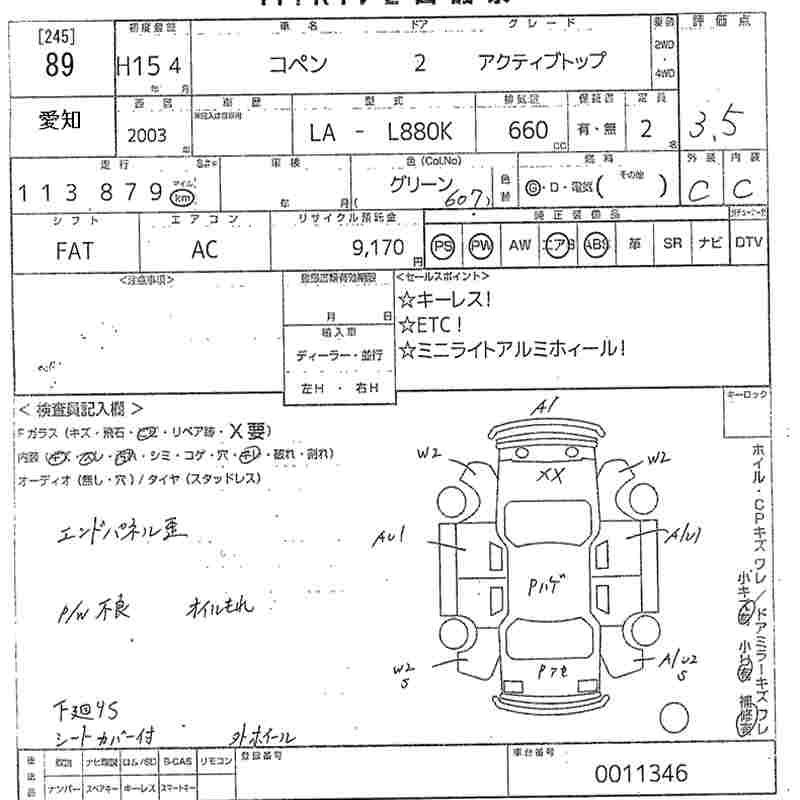 [245]
89
初度登録
H15 4
年 月
車名
コペン
ドア
2
グレード
アクティブトップ
2WD
・
4WD
評価点
3.5
愛知
2003
年
車歴
型式
LA - L880K
排気量
660
CC
有・無
定員
2
名
走行
113879
マイル
km
車検
年 月
色(Col,No)
グリーン
(607)
色替
燃料
G・D・電気( その他 )
外装
C
内装
C
シフト
FAT
エアコン
AC
リサイクル預託金
9,170
円
純正装備品
PS
PW
AW
エアB
ABS
革
SR
ナビ
DTV
<注意事項>
月 日
輸入車
ディーラー・並行
左H ・ 右H
<セールスポイント>
☆キーレス!
☆ETC!
☆ミニライトアルミホィール!
キーロック
< 検査員記入欄 >
Fガラス(キズ・飛石・ヒビ・リペア跡・X要)
内装(キズ・スレ・汚れ・シミ・コゲ・穴・キレ・破れ・割れ)
オーディオ(無し・穴)/タイヤ(スタッドレス)
エンドパネル歪
P/W 不良 オイルもれ
下廻りS
シートカバー付 外ホイール
A1
W2
XX
W2
AU1
A/U1
Pハゲ
W2
S
Pアセ
A/U2
S
ホイル・CPキズ ワレ/ドアミラーキズ ワレ
小キズ有 小ヒ有 補修有
ナンバー
スペアキー
キーレス
スマートキー
B-CAS
リモコン
登録番号
車台番号
0011346